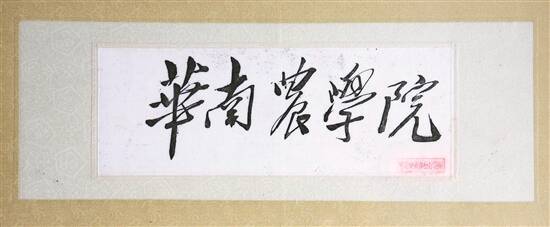 華南農學院